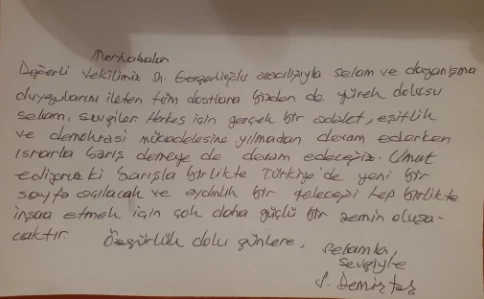 Merhabalar
Değerli Vekilimiz Sn. Gergerlioğlu aracılığıyla selam ve dayanışma
duygularını ileten tüm dostlara bizden de yürek dolusu
selam, sevgiler. Herkes için gerçek bir adalet, eşitlik
ve demokrasi mücadelesine yılmadan devam ederken
ısrarla barış demeye de devam edeceğiz. Umut
ediyoruz ki barışla birlikte Türkiye'de yeni bir
sayfa açılacak ve aydınlık bir geleceği hep birlikte
inşaa etmek için çok daha güçlü bir zemin oluşa-
caktır. Özgürlük dolu günlere,
selamla,
sevgiyle
S. Demirtaş